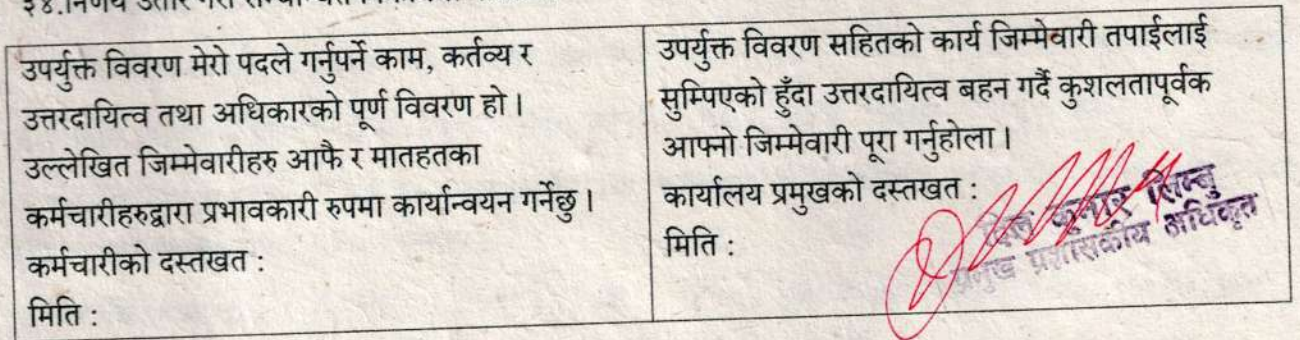 ३४.निर्णय उतार गरी
उपर्युक्त विवरण मेरो पदले गर्नुपर्ने काम, कर्तव्य र
उत्तरदायित्व तथा अधिकारको पूर्ण विवरण हो ।
उल्लेखित जिम्मेवारीहरु आफै र मातहतका
कर्मचारीहरुद्वारा प्रभावकारी रुपमा कार्यान्वयन गर्नेछु ।
कर्मचारीको दस्तखत :
मिति :
उपर्युक्त विवरण सहितको कार्य जिम्मेवारी तपाईलाई
सुम्पिएको हुँदा उत्तरदायित्व बहन गर्दै कुशलतापूर्वक
आफ्नो जिम्मेवारी पूरा गर्नुहोला ।
कार्यालय प्रमुखको दस्तखत :
मिति :
कुमार लिम्बु
प्रमुख प्रशासकीय अधिकृत